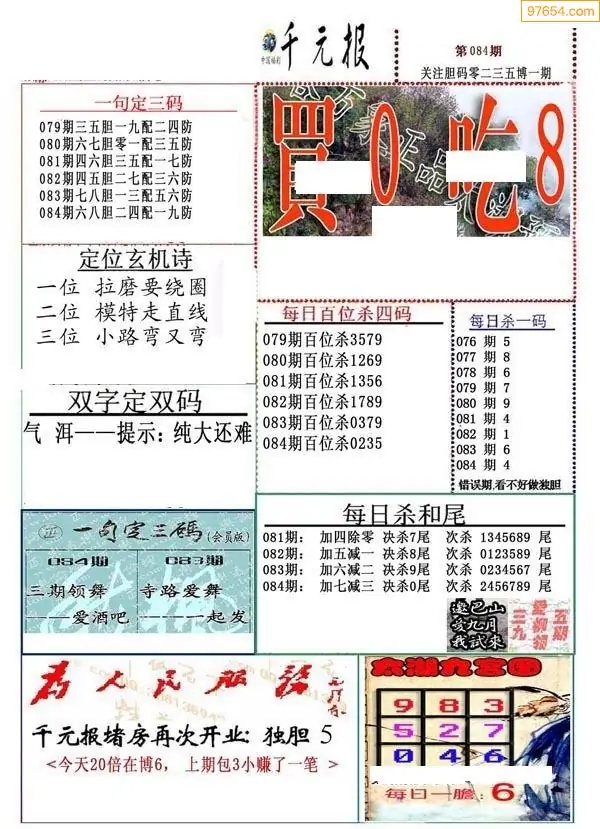 97654.com
中国福彩
千元报
第084期
关注胆码零二三五博一期
一句定三码
079期三五胆一九配二四防
080期六七胆零一配三五防
081期四六胆三五配一七防
082期四五胆二七配三六防
083期七八胆一三配五六防
084期六八胆二四配一九防
買0 吃8
定位玄机诗
一位 拉磨要绕圈
二位 模特走直线
三位 小路弯又弯
每日百位杀四码
079期百位杀3579
080期百位杀1269
081期百位杀1356
082期百位杀1789
083期百位杀0379
084期百位杀0235
每日杀一码
076 期 5
077 期 8
078 期 6
079 期 7
080 期 9
081 期 4
082 期 1
083 期 6
084 期 4
错误期,看不好做独胆
双字定双码
气 洱——提示:纯大还难
一句定三碼(会员版)
084期 083期
三期领舞 寺路爱舞
——爱酒吧 ——一起发
每日杀和尾
081期: 加四除零 决杀7尾 次杀 1345689 尾
082期: 加五减一 决杀8尾 次杀 0123589 尾
083期: 加六减二 决杀9尾 次杀 0234567 尾
084期: 加七减三 决杀0尾 次杀 2456789 尾
邀巴山
亥九月
我試來
三九
爱柳领
五期
为人民服务
千元报堵房再次开业: 独胆 5
<今天20倍在博6, 上期包3小赚了一笔 >
太湖九宫图
9 8 3
5 2 7
0 4 6
每日一膽: 6